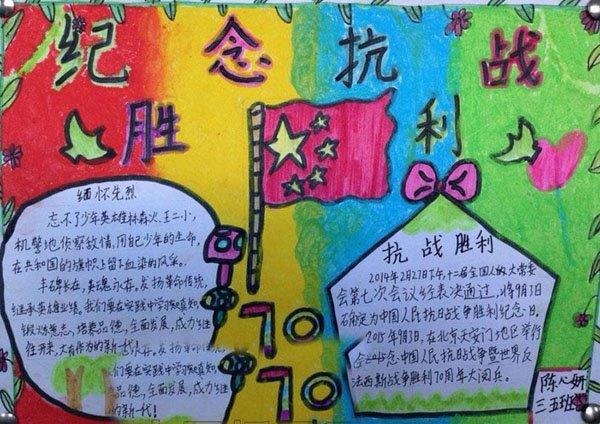 纪念抗战
胜利
缅怀先烈
忘不了少年英雄林森火、王二小,
机警地侦察敌情,用自己少年的生命,
在共和国的旗帜上留下血染的风采。
丰碑长在,英魂永存。发扬革命传统,
继承英雄业绩。我们要在实践中学习知识
锻炼意志,培养品德,全面发展,成为继
往开来,大有作为的新一代!
永存。发扬革命传统,
我们要在实践中学习知识
品德,全面发展,成为继
的新一代!
70
70
抗战胜利
2014年2月27日下午,十二届全国人的大常委
会第七次会议经表决通过,将9月3
日确定为中国人民抗日战争胜利纪念日。
2015年9月3日,在北京天安门地区举行
念中国人民抗日战争暨世界反
法西斯战争胜利70周年大阅兵。
陈心妍
三五班